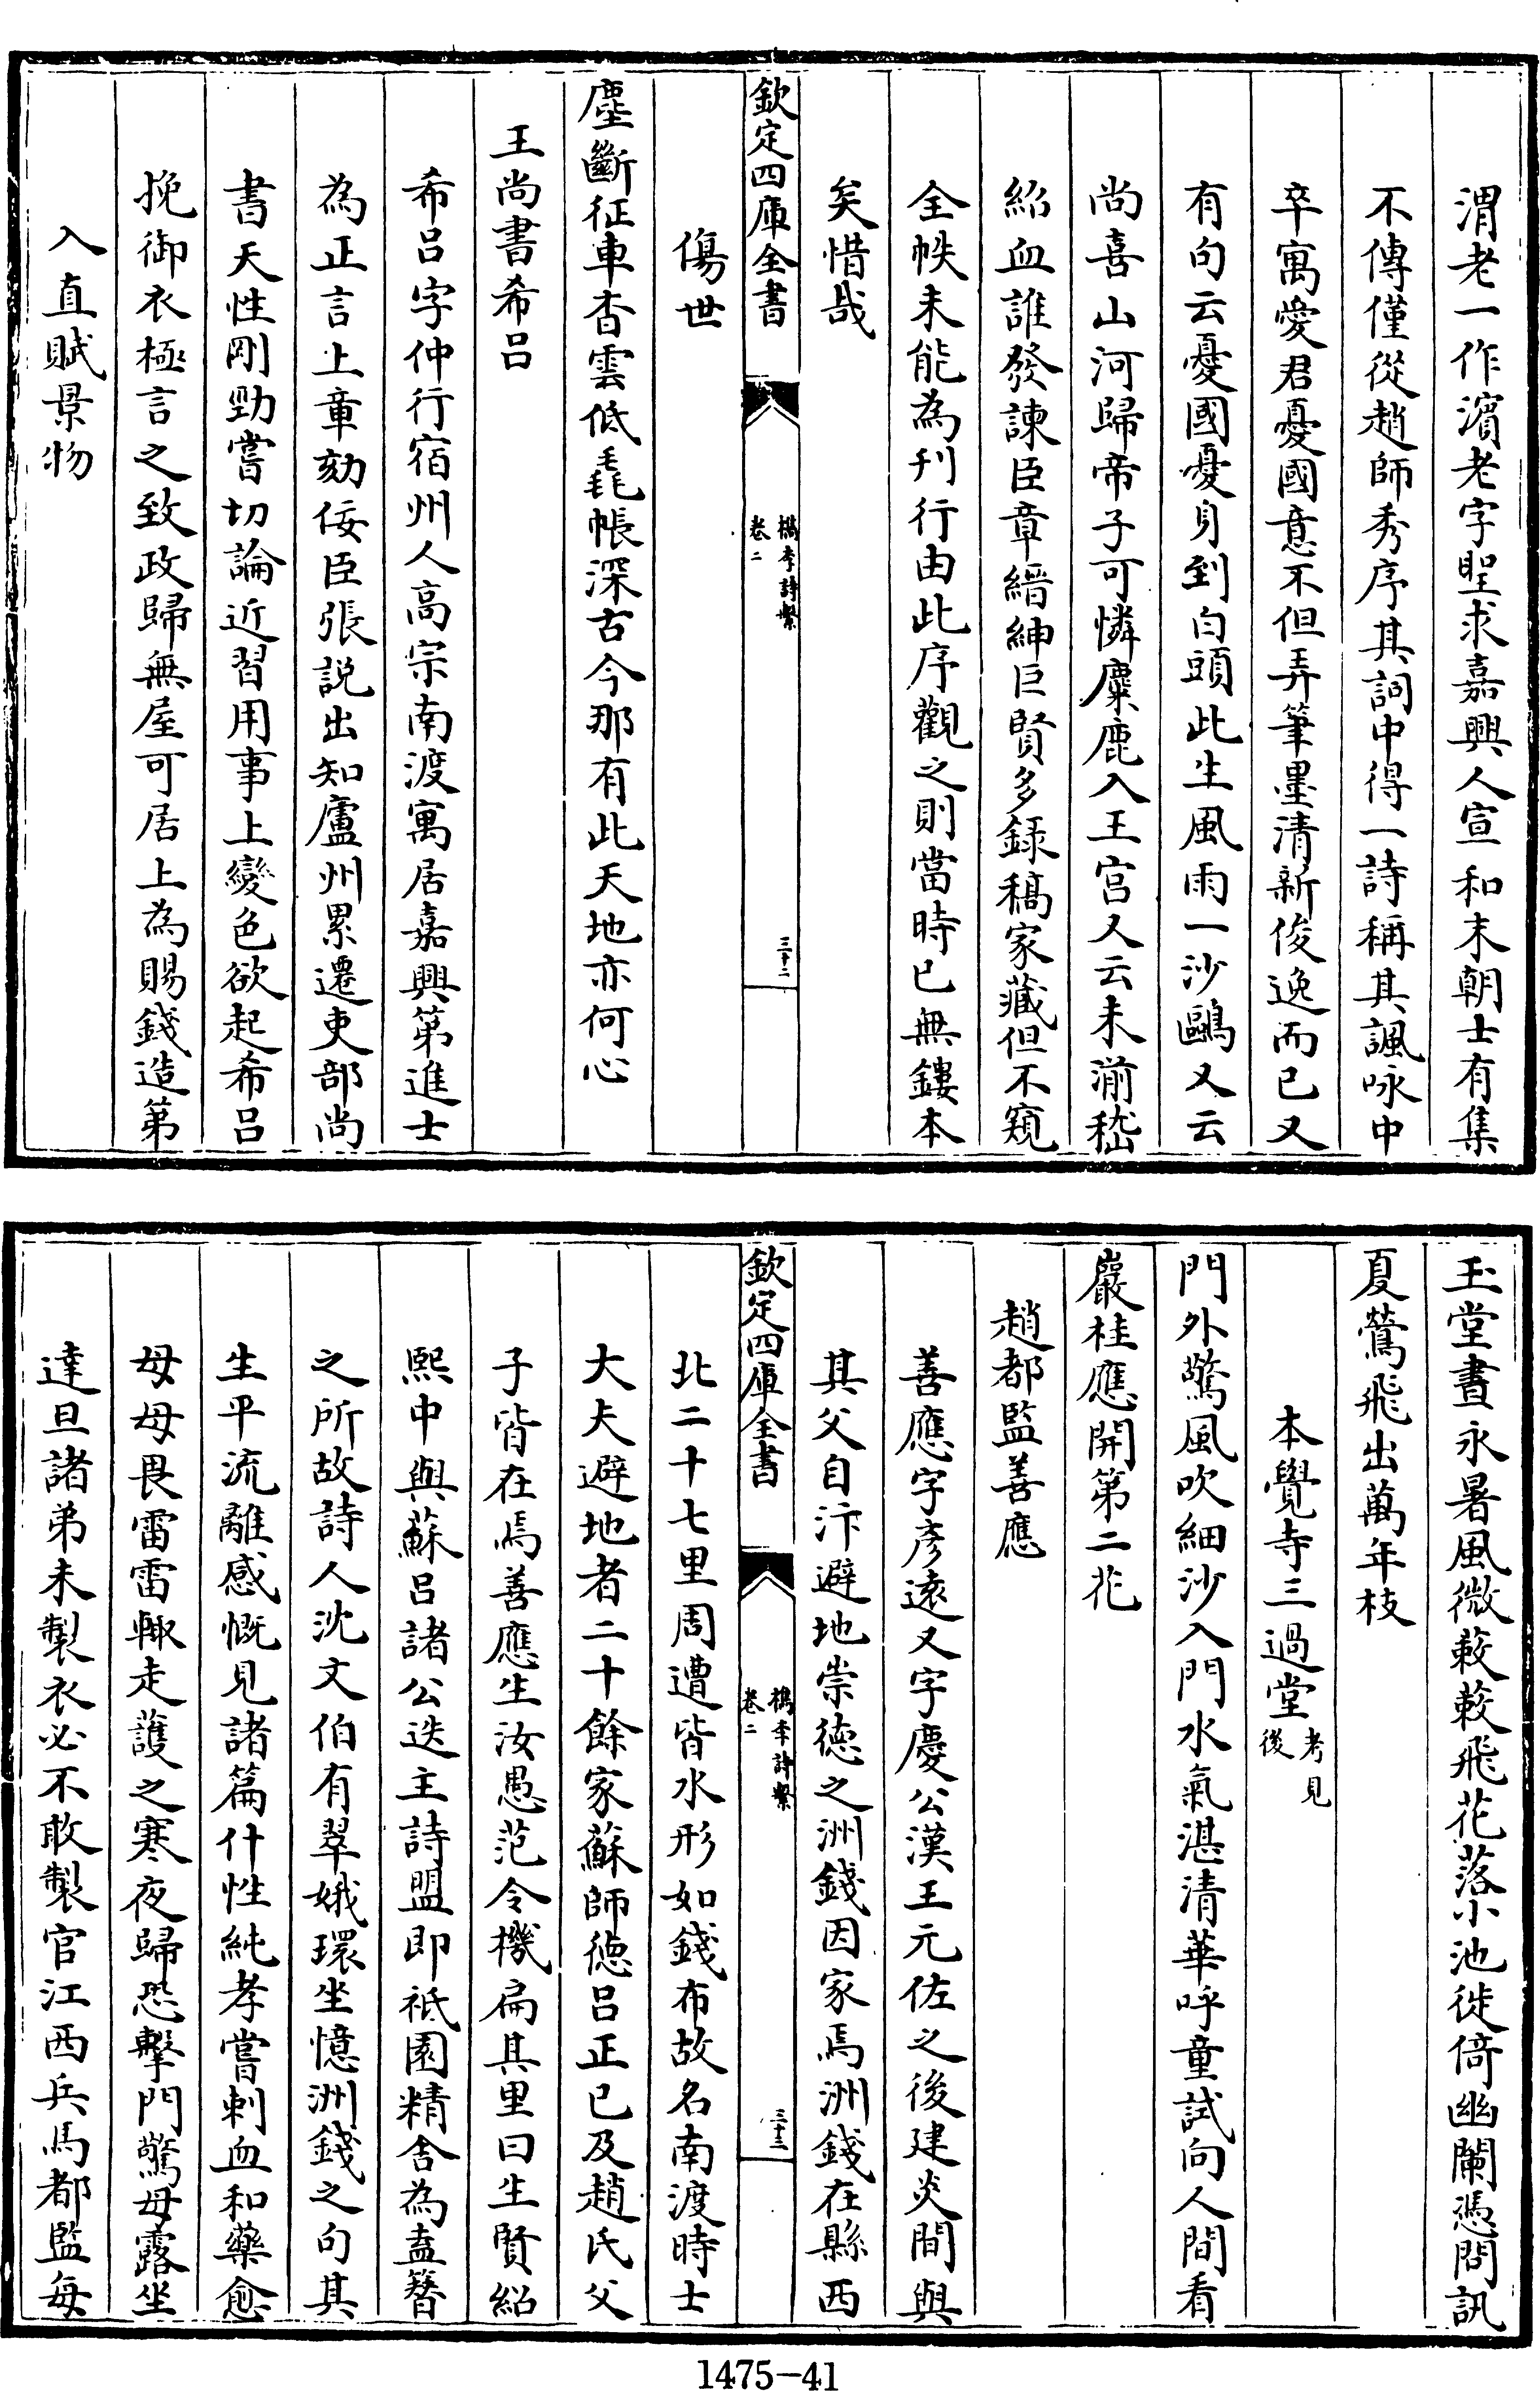 渭老一作濱老字聖求嘉興人宣和末朝士有集
不傳僅從趙師秀序其詞中得一詩稱其諷咏中
卒寓愛君憂國意不但弄筆墨清新俊逸而已又
有句云憂國憂身到白頭此生風雨一沙鷗又云
尚喜山河歸帝子可憐麋鹿入王宫又云未湔嵇
紹血誰發諫臣章縉紳巨賢多録稿家藏但不窺
全帙未能為刋行由此序觀之則當時已無鏤本
矣惜哉
欽定四庫全書
檇李詩繫
卷二
三十二
傷世
塵斷征車杳雲低毳帳深古今那有此天地亦何心
王尚書希吕
希吕字仲行宿州人高宗南渡寓居嘉興第進士
為正言上章劾佞臣張説出知廬州累遷吏部尚
書天性剛勁嘗切論近習用事上變色欲起希吕
挽御衣極言之致政歸無屋可居上為賜錢造第
入直賦景物
玉堂晝永暑風微蔌蔌飛花落小池徙倚幽闌憑問訊
夏鶯飛出萬年枝
本覺寺三過堂考見後
門外驚風吹細沙入門水氣湛清華呼童試向人間看
巖桂應開第二花
趙都監善應
善應字彦逺又字慶公漢王元佐之後建炎間與
其父自汴避地崇徳之洲錢因家焉洲錢在縣西
欽定四庫全書
檇李詩繫
卷二
三十三
北二十七里周遭皆水形如錢布故名南渡時士
大夫避地者二十餘家蘇師徳吕正已及趙氏父
子皆在焉善應生汝愚范令機扁其里曰生賢紹
熙中與蘇吕諸公迭主詩盟即祗園精舍為盍簪
之所故詩人沈文伯有翠娥環坐憶洲錢之句其
生平流離感慨見諸篇什性純孝嘗刺血和藥愈
母母畏雷雷輙走護之寒夜歸恐擊門驚母露坐
達旦諸弟未製衣必不敢製官江西兵馬都監每
1475-41